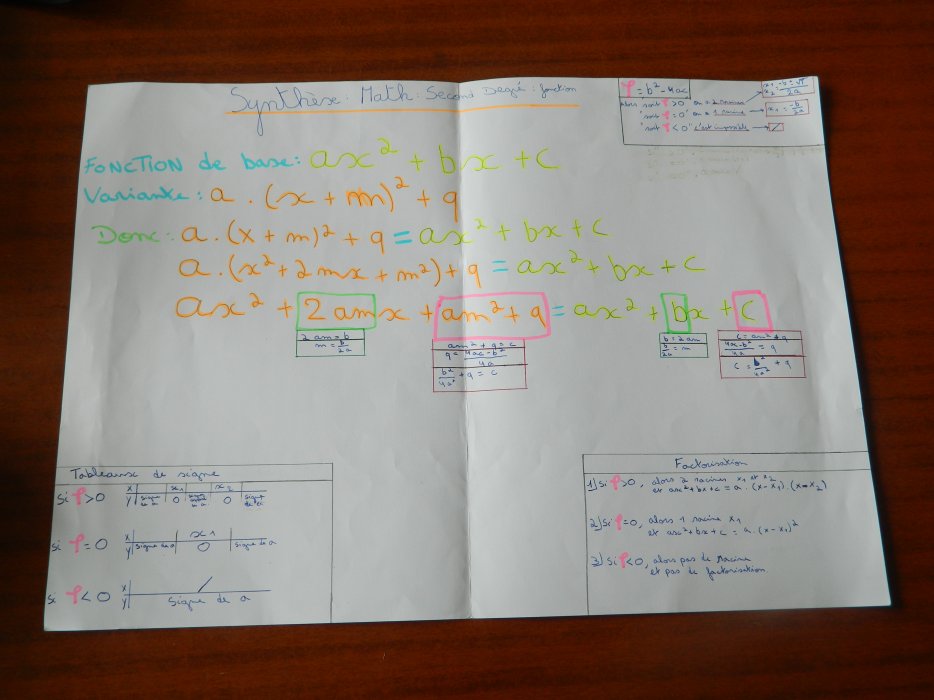 Synthèse: Math: Second Degré: fonction
φ = b² - 4ac
alors soit φ > 0 on a 2 racines
"soit φ = 0" on a 1 racine
"soit φ < 0" c'est impossible → /
x₁ = -b/2a
Fonction de base: ax² + bx + c
Variante: a . (x + m)² + q
Donc: a . (x + m)² + q = ax² + bx + c
a . (x² + 2mx + m²) + q = ax² + bx + c
ax² + 2amx + am² + q = ax² + bx + c
2am = b
m = b/2a
am² + q = c
q = 4ac - b²/4a
b²/4a² + q = c
b = 2am
b/2a = m
c = am² + q
4ac - b²/4a = q
c = b²/4a² + q
Tableaux de signe
si φ > 0
x x₁ x₂
y signe de a 0 0 signe de a
si φ = 0
x x1
y signe de a 0 signe de a
si φ < 0
x /
y signe de a
Factorisation
1) Si φ > 0, alors 2 racines x₁ et x₂
et ax² + bx + c = a . (x - x₁) . (x - x₂)
2) Si φ = 0, alors 1 racine x₁
et ax² + bx + c = a . (x - x₁)²
3) Si φ < 0, alors pas de racine
et pas de factorisation